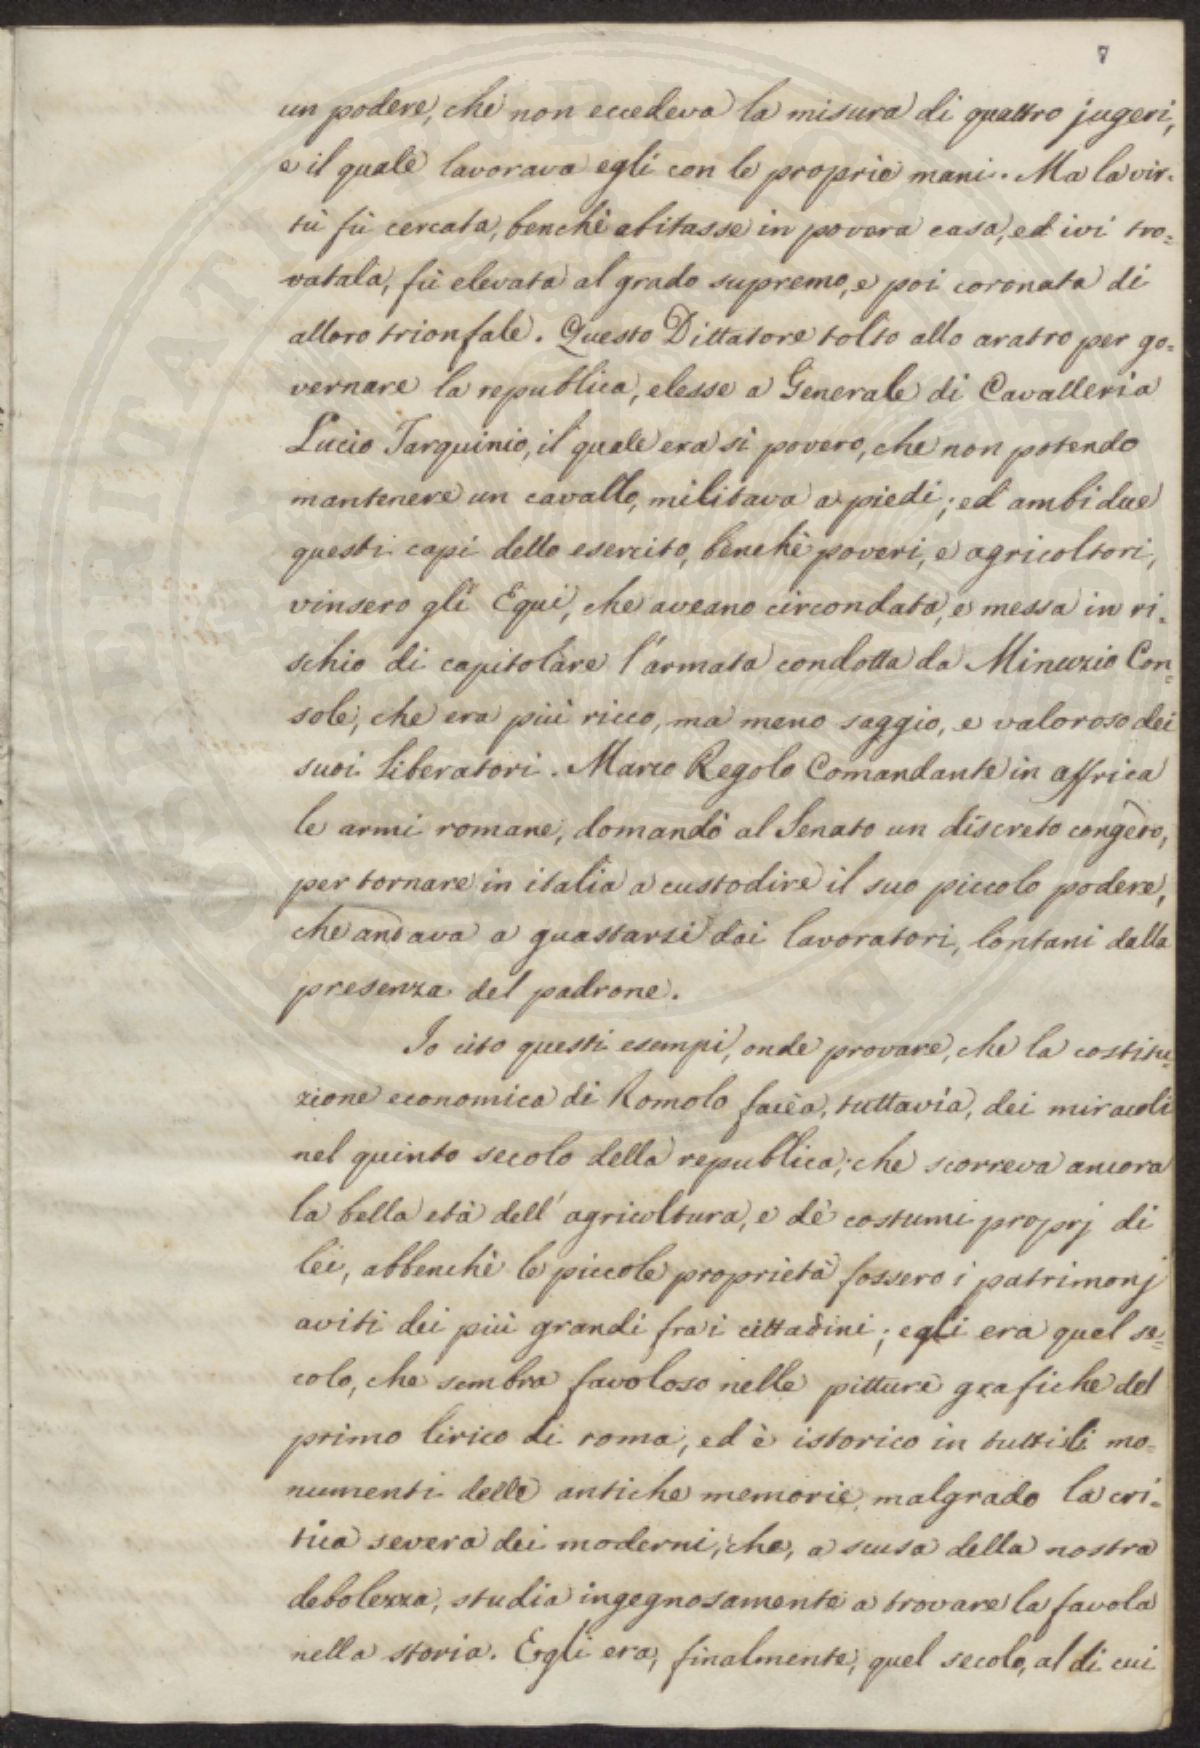 7
un podere, che non eccedeva la misura di quattro jugeri,
e il quale lavorava egli con le proprie mani. Ma la vir-
tù fù cercata, benchè abitasse in povera casa, ed ivi tro=
vatala, fù elevata al grado supremo, e poi coronata di
alloro trionfale. Questo Dittatore tolto allo aratro per go=
vernare la republica, elesse a Generale di Cavalleria
Lucio Tarquinio, il quale era sì povero, che non potendo
mantenere un cavallo, militava a piedi; ed ambidue
questi capi dello esercito, benchè poveri, e agricoltori,
vinsero gli Equi, che aveano circondata, e messa in ri-
schio di capitolare l'armata condotta da Minuzio Con=
sole, che era più ricco, ma meno saggio, e valoroso dei
suoi liberatori. Marco Regolo Comandante in affrica
le armi romane, domandò al Senato un discreto congèdo,
per tornare in italia a custodire il suo piccolo podere,
che andava a guastarsi dai lavoratori, lontani dalla
presenza del padrone.
Io cito questi esempi, onde provare, che la costitu=
zione economica di Romolo facèa, tuttavia, dei miracoli
nel quinto secolo della republica; che scorreva ancora
la bella età dell' agricoltura, e de' costumi proprj di
lei, abbenchè le piccole proprietà fossero i patrimonj
aviti dei più grandi fra i cittadini; egli era quel se=
colo, che sembra favoloso nelle pitture grafiche del
primo lirico di roma, ed è istorico in tutti li mo=
numenti delle antiche memorie, malgrado la cri-
tica severa dei moderni, che, a scusa della nostra
debolezza, studia ingegnosamente a trovare la favola
nella storia. Egli era, finalmente, quel secolo, al di cui